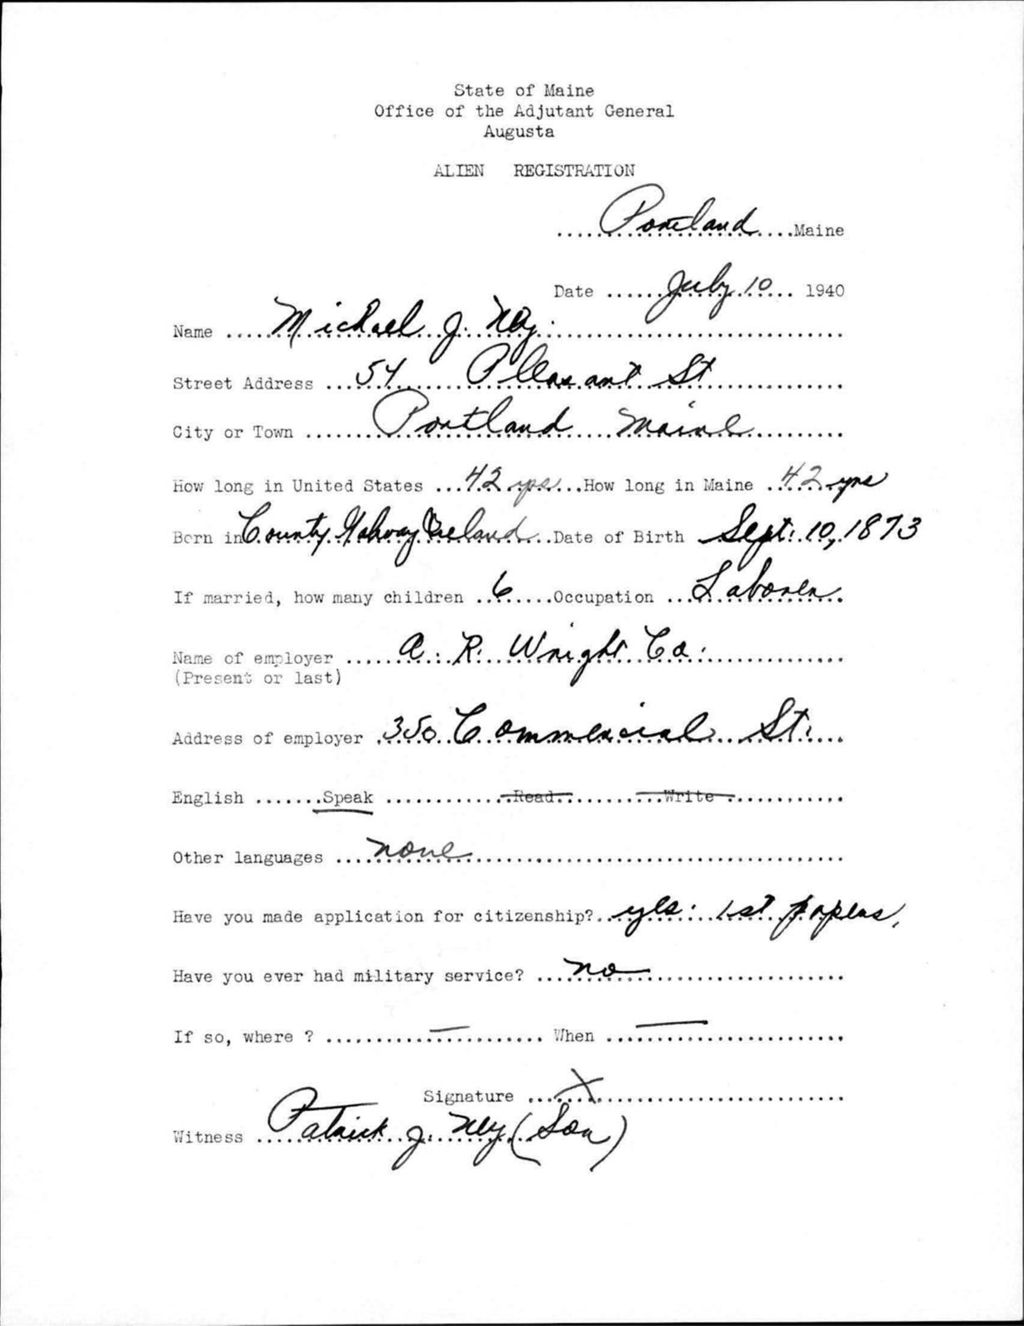 State of Maine
Office of the Adjutant General
Augusta
ALIEN REGISTRATION
Portland Maine
Date July 10 1940
Name Michael J. Ney
Street Address 54 Pleasant St
City or Town Portland Maine
How long in United States 42 yrs How long in Maine 42 yrs
Born in County Galway Ireland Date of Birth Sept. 10, 1873
If married, how many children 6 Occupation Laborer
Name of employer A. R. Wright Co.
(Present or last)
Address of employer 350 Commercial St.
English Speak Read Write
Other languages none
Have you made application for citizenship? yes: 1st papers,
Have you ever had military service? no
If so, where ? — When —
Signature X
Witness Patrick J. Ney (Son)